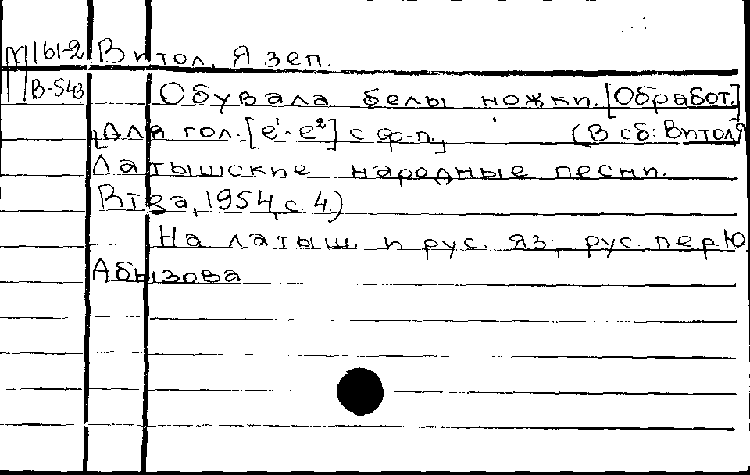 М 161-2 Витол, Я зеп.
В-543 Обувала белы ножки. [Обработ.]
для гол. [e¹-e²] с ф-п., (В сб: Витол Я
Латышские народные песни.
, 1954, с. 4.)
На латыш. и рус. яз., рус. пер. Ю
Абызова